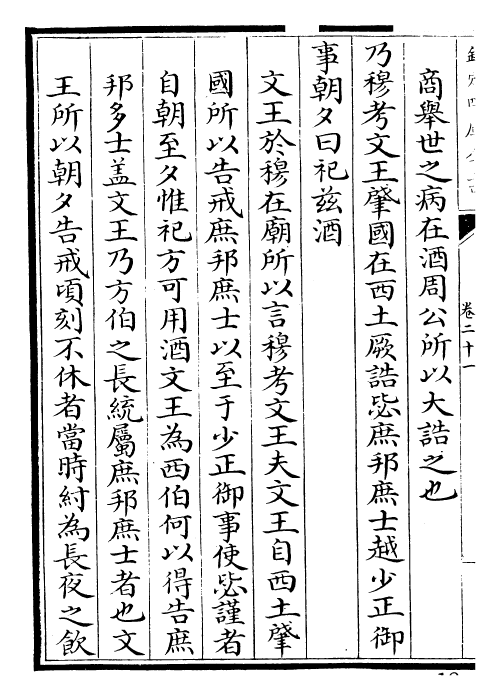 商舉世之病在酒周公所以大誥之也
乃穆考文王肇國在西土厥誥毖庶邦庶士越少正御
事朝夕曰祀茲酒
文王於穆在廟所以言穆考文王夫文王自西土肇
國所以告戒庶邦庶士以至于少正御事使毖謹者
自朝至夕惟祀方可用酒文王為西伯何以得告庶
邦多士盖文王乃方伯之長統屬庶邦庶士者也文
王所以朝夕告戒頃刻不休者當時紂為長夜之飲
卷二十一